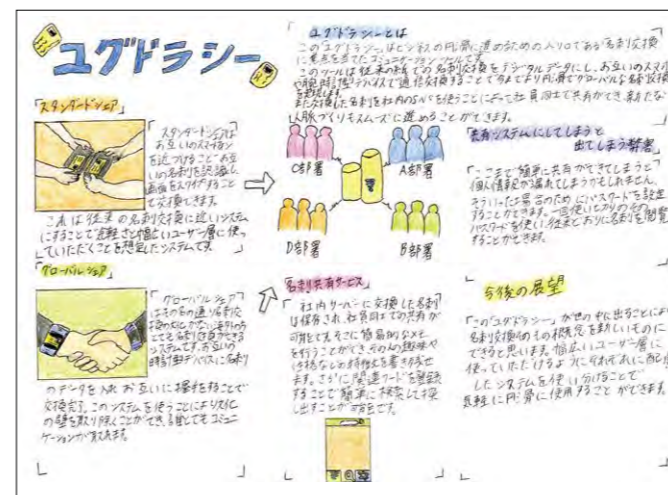 ユグドラシー
「スタンダードシェア」
スタンダードシェアは
お互いのスマートフォン
を近づけることでお互
いの名刺を認識し
画面をスワイプすること
で交換できます。
これは従来の名刺交換に近いシステム
にすることで気軽さと幅広いユーザー層に使っ
ていただくことを想定したシステムです。
「グローバルシェア」
グローバルシェア
はその名の通り名刺交
換の文化がない海外の方
とでも名刺交換ができる
システムです。お互いの
腕時計型デバイスに名刺
のデータを入れお互いに握手をすることで
交換完了。このシステムを使うことにより文化
の壁を取り除くことができ、誰とでもコミュニ
ケーションが行えます。
ユグドラシーとは
この「ユグドラシー」はビジネスの円滑に進めるための入り口である「名刺交換」
に焦点を当てたコミュニケーションツールです。
このツールは従来の紙での名刺交換をデジタルデータにし、お互いのスマホ
や腕時計型デバイスで通信交換することで今までより円滑でグローバルな名刺交換
を実現します。
また交換した名刺を社内のSNSを使うことによって社員同士で共有ができ、新たな
人脈づくりもスムーズに進めることができます。
C部署
A部署
D部署
B部署
「名刺共有サービス」
社内サーバーに交換した名刺
は保存され、社員同士での共有が
可能です。そこに簡易的なメモ
を行うことができ、その人の趣味や
性格などの特徴を書き残せ
ます。さらに関連ワードを登録
することで簡単に検索して探
し出すことが可能です。
「共有システムにしてしまうと
出てしまう弊害」
ここまで簡単に共有ができてしまうと
個人情報が漏れてしまうかもしれません。
そういった場合のためにパスワードを設定
することができます。一回使い切りのその
パスワードを使い、従来どおりに名刺を閲覧
することができます。
今後の展望
この「ユグドラシー」が世の中に出ることにより
名刺交換そのものの概念を新しいものに
できると思います。幅広いユーザー層に
使っていただけるようにそれぞれに配慮
したシステムを使い分けることで
気軽に円滑に使用することができます。